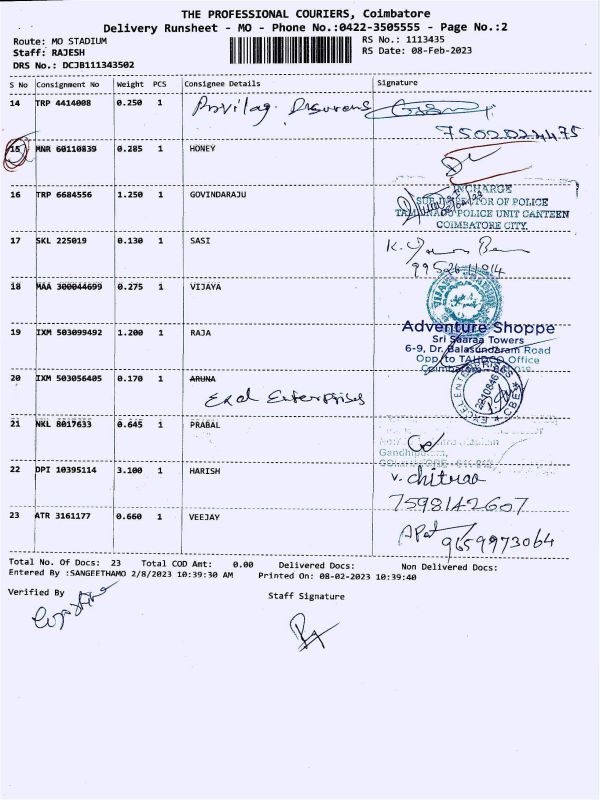 THE PROFESSIONAL COURIERS, Coimbatore
Delivery Runsheet - MO - Phone No.:0422-3505555 - Page No.:2
Route: MO STADIUM RS No.: 1113435
Staff: RAJESH RS Date: 08-Feb-2023
DRS No.: DCJB111343502
S No Consignment No Weight PCS Consignee Details Signature
14 TRP 4414008 0.250 1
7502024475
15 MNR 60110839 0.285 1 HONEY
16 TRP 6684556 1.250 1 GOVINDARAJU
INCHARGE
SUB INSPECTOR OF POLICE
TAMILNADU POLICE UNIT CANTEEN
COIMBATORE CITY.
17 SKL 225019 0.130 1 SASI
K.
18 MAA 300044699 0.275 1 VIJAYA
19 IXM 503099492 1.200 1 RAJA
Adventure Shoppe
Sri Saaraa Towers
6-9, Dr. Balasundaram Road
Opp. to TAHDCO Office
20 IXM 503056405 0.170 1 ARUNA
Exal Enterprises
21 NKL 8017633 0.645 1 PRABAL
22 DPI 10395114 3.100 1 HARISH
V. chitraa
7598142607
23 ATR 3161177 0.660 1 VEEJAY
9659973064
Total No. Of Docs: 23 Total COD Amt: 0.00 Delivered Docs: Non Delivered Docs:
Entered By :SANGEETHAMO 2/8/2023 10:39:30 AM Printed On: 08-02-2023 10:39:40
Verified By
Staff Signature